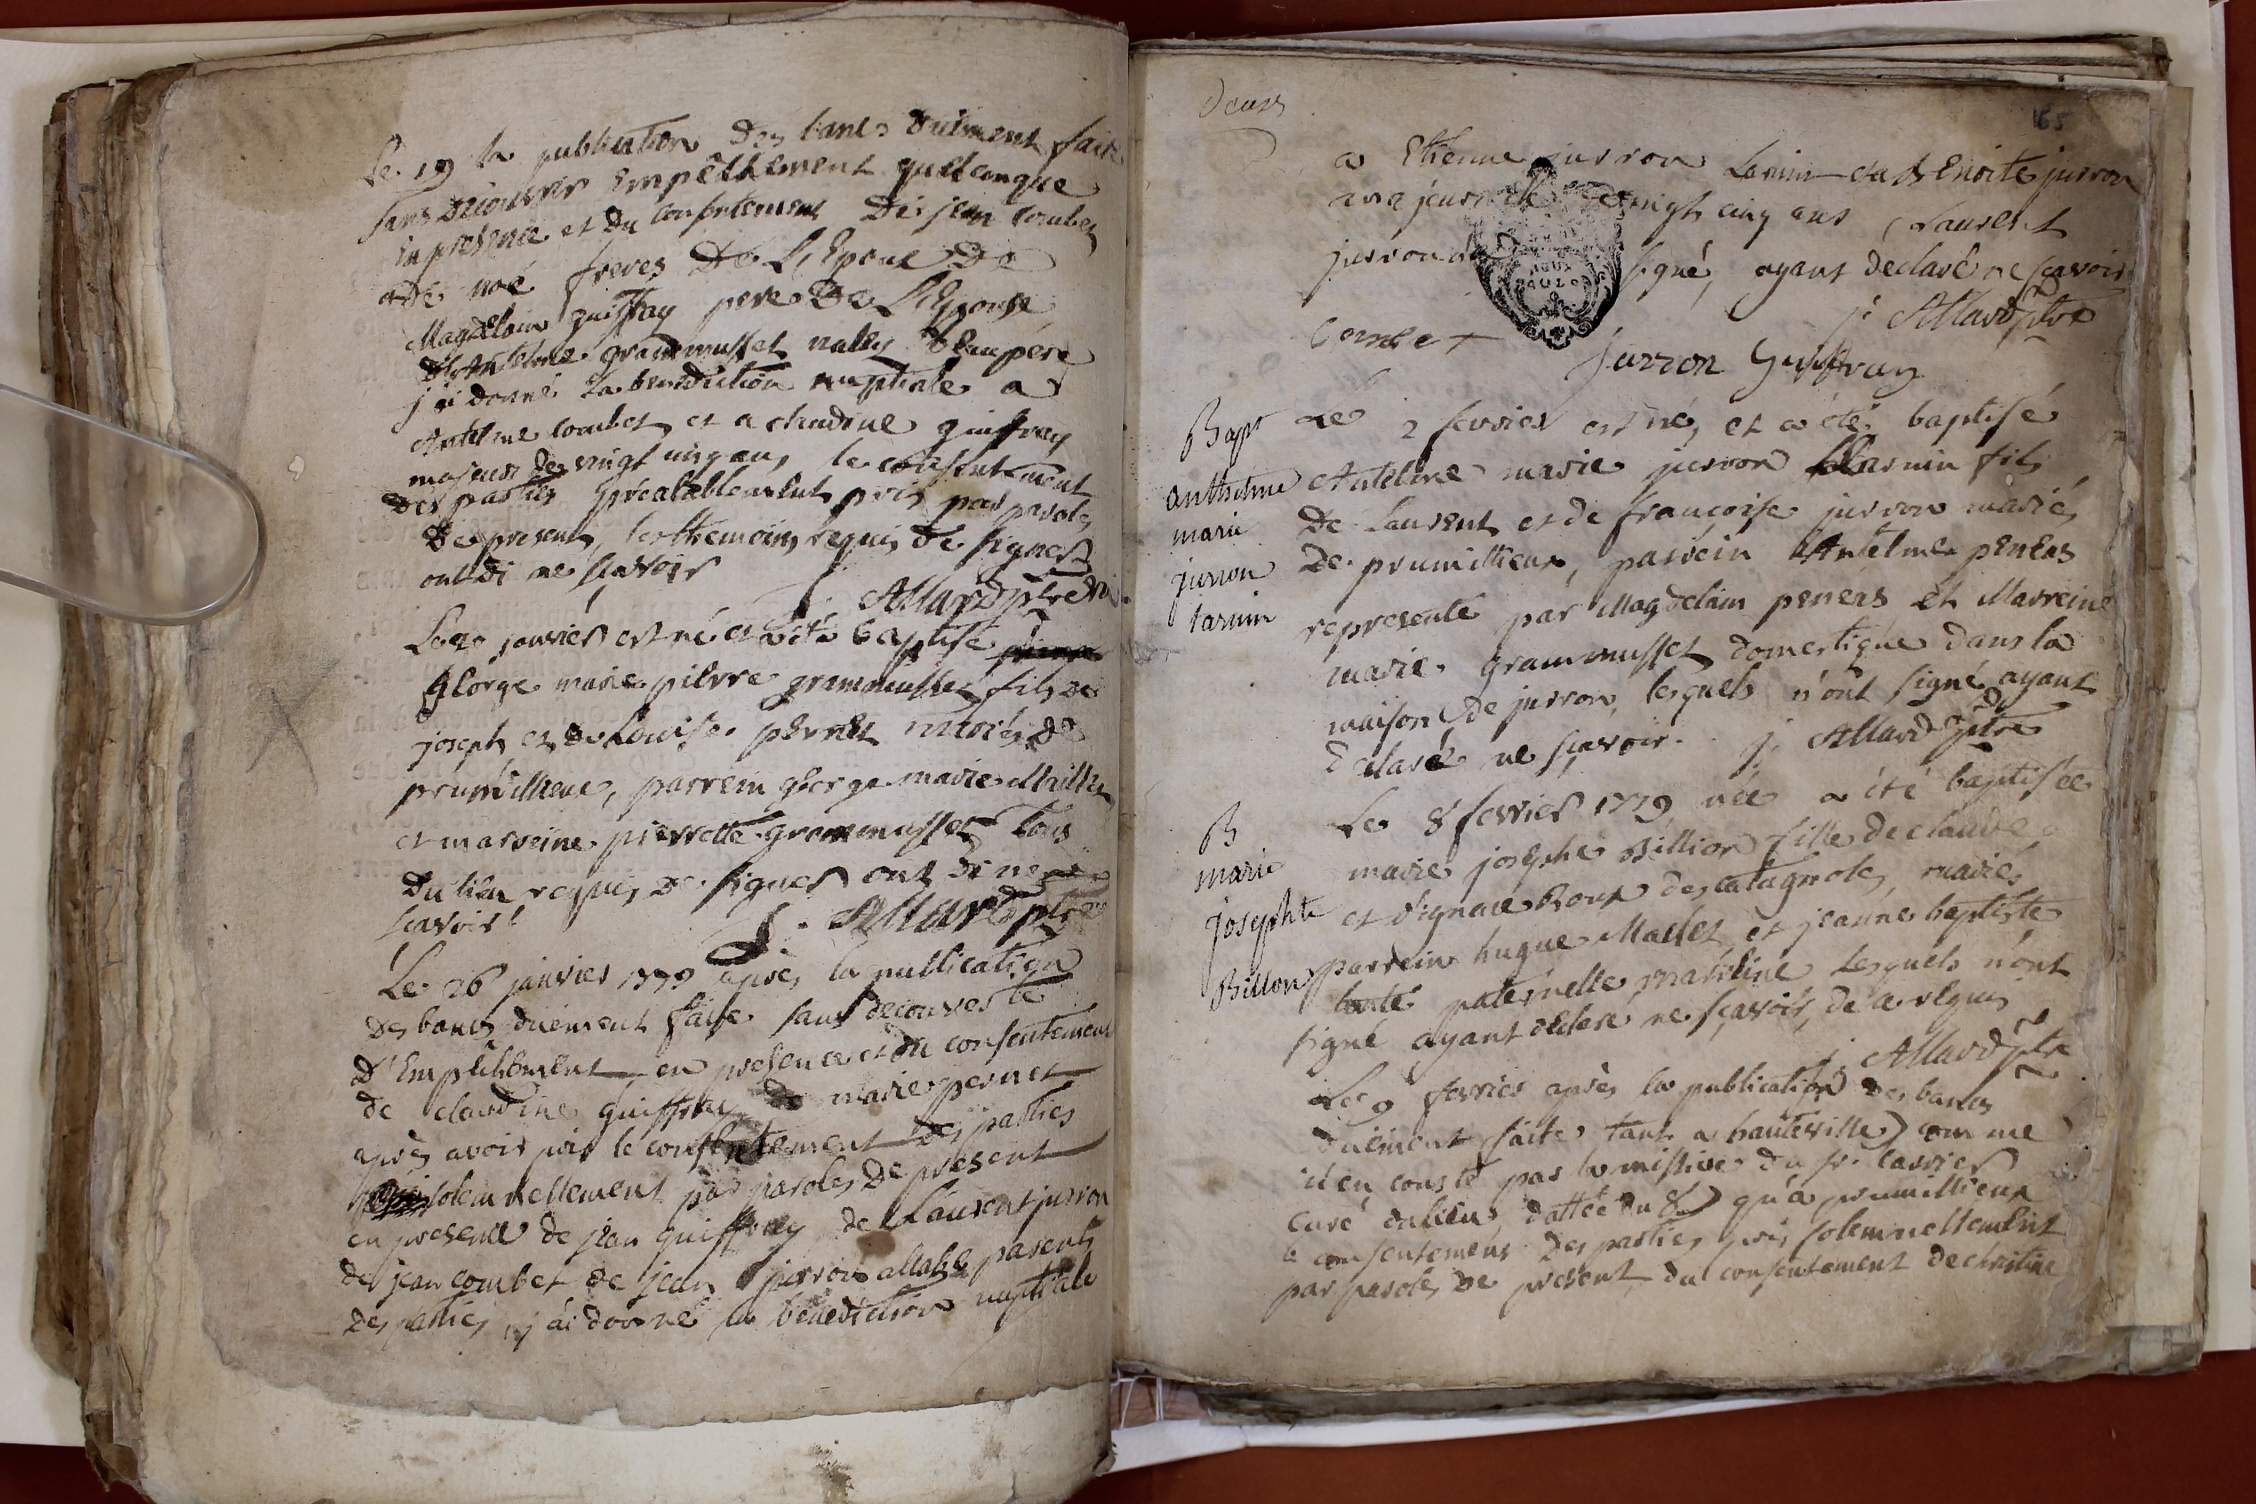 Le 19 la publication des bans duement faite
sans découvrir empêchement quelconque
en presence et du consentement de jean combet
frères de L'Epoux de
Magdelain guiffray pere de L'Epouse
grammusset beaupere
j'ai donné la benediction nuptiale a
Antelme combet et a claudine guiffray
majeurs de vingt cinq ans, le consentement
des parties préalablement pris par paroles
de present, les themoins requis de signer
ont di ne sçavoir
J. Allard ptre
Le 20 janvier est né et a été baptisé
George marie pierre grammusset fils de
joseph et de Louise pernet mariés de
prumillieux, parrein george marie
et marreine pierrette grammusset tous
du lieu requis de signer ont di ne
sçavoir
J. Allard ptre
Le 26 janvier 1779 après la publication
des bancs duement faite sans decouverte
d'Empêchement en presence et du consentement
de claudine guiffray de marie pernet
après avoir pris le consentement des parties
solemnellement par paroles de present
en presence de jean guiffray de Laurent jurron
de jean combet de jean jurron parents
des parties, j'ai donné la bénédiction nuptiale
deux
165
a Etienne jurron Larmin et a Benoite jurron
majeurs de vingt cinq ans, Laurent
jurron signé, ayant déclaré ne sçavoir
j. Allard ptre
Combet
Jurron Guiffray
Bapt
anthelme
marie
jurron
larmin
Le 2 fevrier est né, et a été baptisé
Antelme marie jurron Larmin fils
de Laurent et de françoise jurron mariés
de prumillieux, parrein Antelme peners
representé par Magdelain peners et Marreine
marie grammusset domestique dans la
maison de jurron, lesquels n'ont signé ayant
déclaré ne sçavoir. j. Allard ptre
B
marie
josephte
Billon
Le 8 fevrier 1779 née a été baptisée
marie josephe Billion fille de claude
et d'ignace Roux des catagnoles, mariés
parrein hugue Mallet et jeanne baptiste
tante paternelle marreine lesquels n'ont
signé ayant declaré ne sçavoir, de ce requis
j. Allard ptre
Le 9 fevrier après la publication des bancs
duement faite tant a hauteville comme
il en conste par la missive du sr. carrier
curé du lieu, dattée du 8 qu'a prumillieux
le consentement des parties pris solemnellement
par paroles de present, du consentement de christine